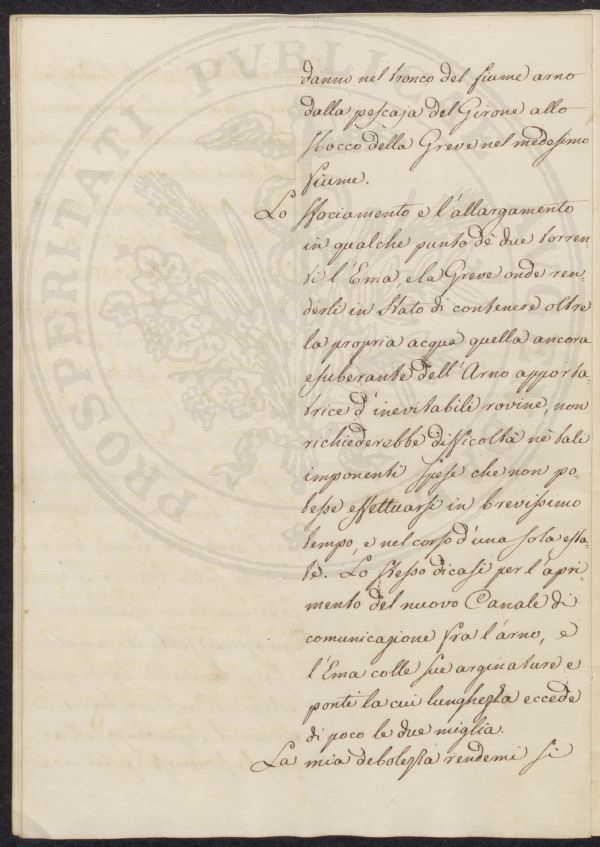 danni nel tronco del fiume arno
dalla pescaja del Girone allo
sbocco della Greve nel medesimo
fiume.
Lo sfociamento e l'allargamento
in qualche punto de due torren-
ti l'Ema, e la Greve onde ren-
derli in stato di contenere oltre
la propria acqua quella ancora
esuberante dell'Arno apporta-
trice d'inevitabili rovine, non
richiederebbe difficoltà nè tali
imponenti spese che non po-
tesse effettuarsi in brevissimo
tempo, e nel corso d'una sola esta-
te. Lo stesso dicasi per l'apri-
mento del nuovo Canale di
comunicazione fra l'arno, e
l'Ema colle sue arginature e
ponti la cui lunghezza eccede
di poco le due miglia.
La mia debolezza rendemi si
PROSPERITATI PVBLICAE